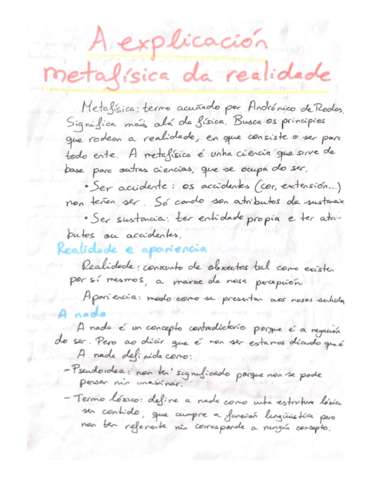 A explicación
metafísica da realidade
Metafísica: termo acuñado por Andrónico de Rodas.
Significa máis alá da física. Busca os principios
que rodean a realidade, en que consiste o ser para
todo ente. A metafísica é unha ciencia que sirve de
base para outras ciencias, que se ocupa do ser.
• Ser accidente: os accidentes (cor, extensión...)
non teñen ser. Só cando son atributos de sustancia
• Ser sustancia: ter entidade propia e ter atri-
butos ou accidentes.
Realidade e apariencia
Realidade: conxunto de obxectos tal como existen
por sí mesmos, a marxe da nosa percepción
Apariencia: modo como se presentan aos nosos sentidos
A nada
A nada é un concepto contradictorio porque é a negación
do ser. Pero ao dicir que é non ser estamos dicindo que é
A nada definida como:
- Pseudoidea: non ten significado porque non se pode
pensar nin imaxinar.
- Termo lóxico: define a nada como unha estrutura lóxica
sen contido, que cumpre a función lingüística pero
non ten referente nin corresponde a ningún concepto.